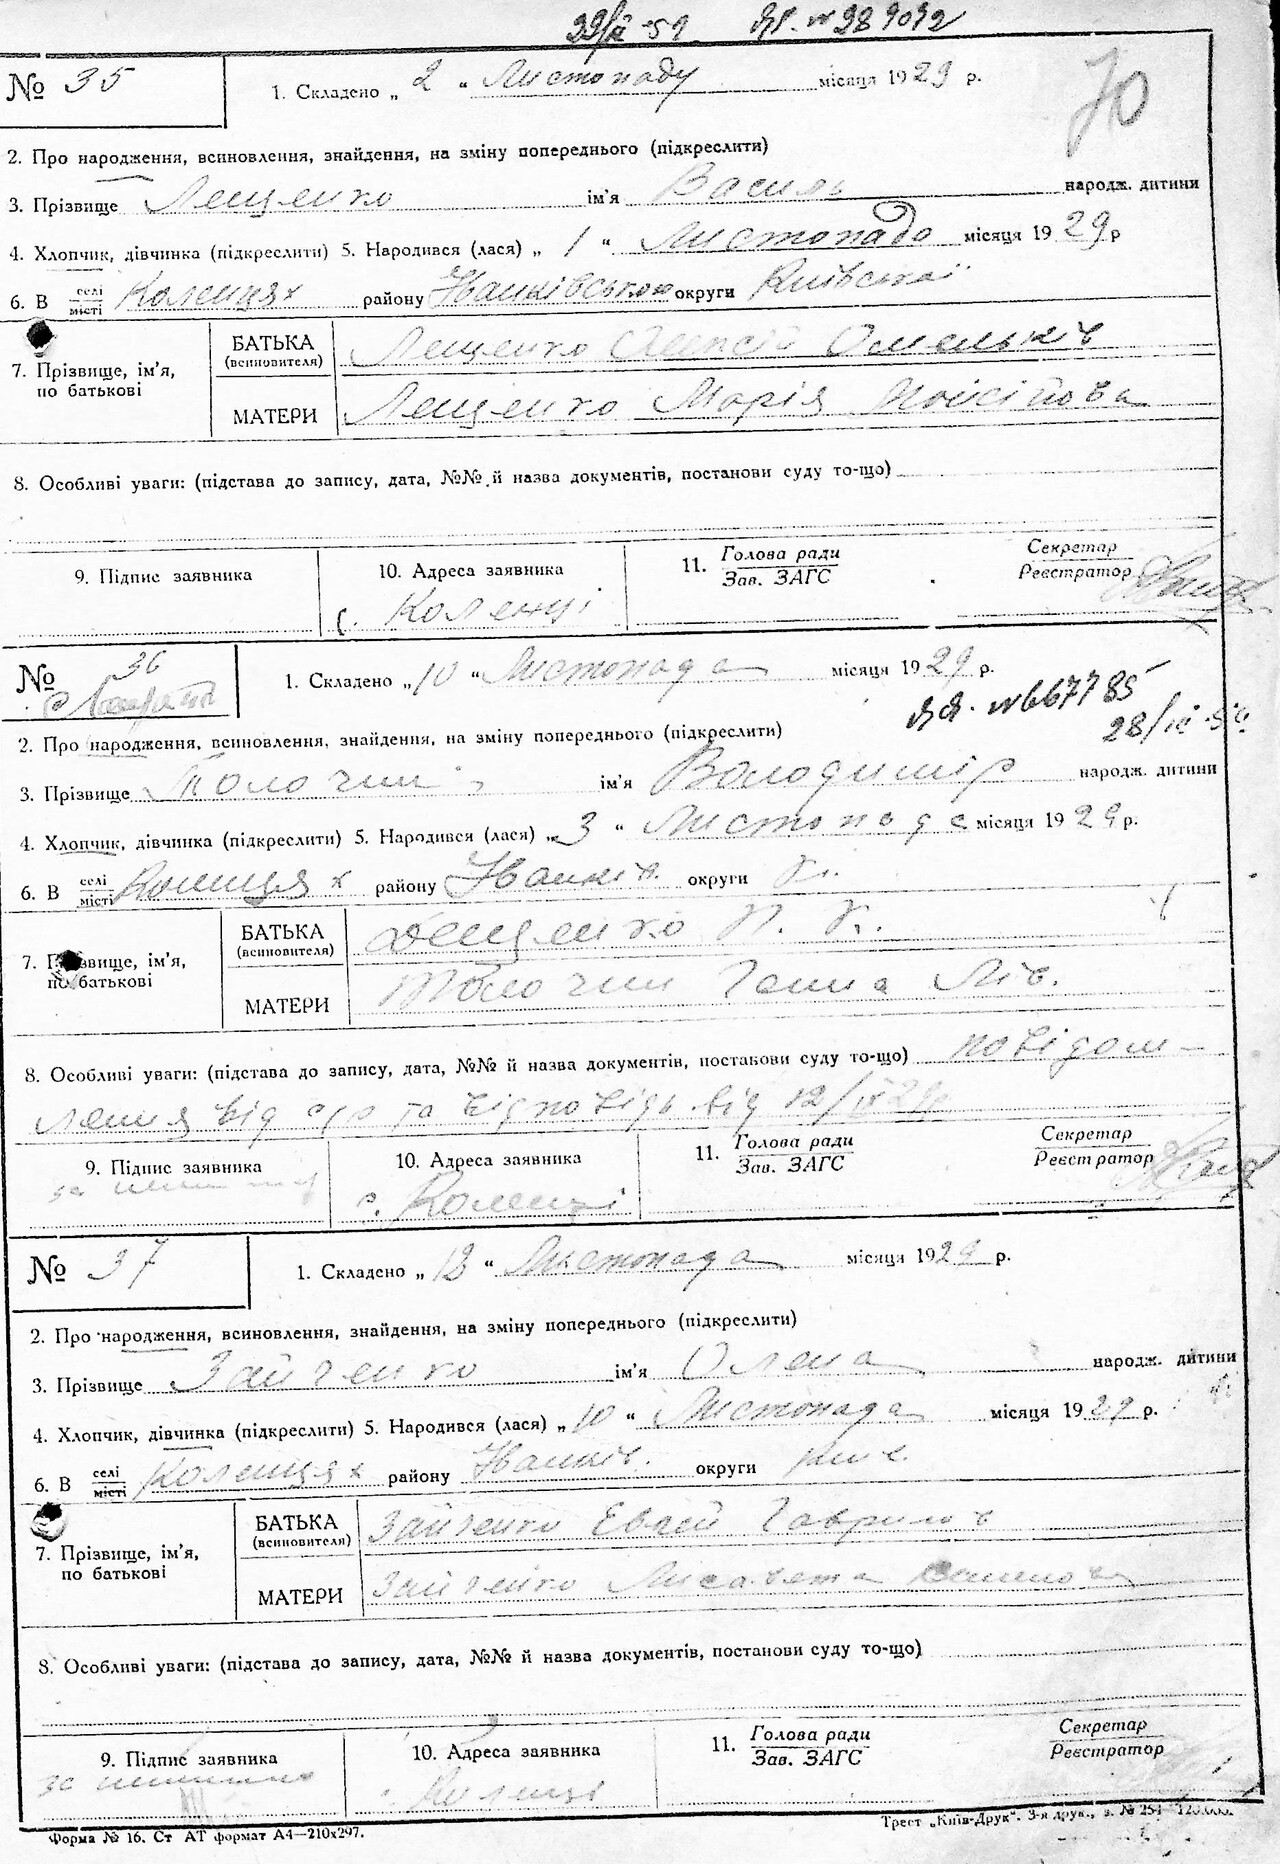 70
№ 35
1. Складено „ 2 “ Листопаду місяця 1929 р.
2. Про народження, всиновлення, знайдення, на зміну попереднього (підкреслити)
3. Прізвище Лещенко ім'я Василь народж. дитини
4. Хлопчик, дівчинка (підкреслити) 5. Народився (лася) „ 1 “ Листопадо місяця 1929 р
6. В селі місті Коленцях району Іванківською округи Київської
7. Прізвище, ім'я, по батькові
БАТЬКА (всиновителя) Лещенко Олексій Омельків
МАТЕРИ Лещенко Марія Мойсійова
8. Особливі уваги: (підстава до запису, дата, №№ й назва документів, постанови суду то-що)
9. Підпис заявника
10. Адреса заявника
с. Коленці
11. Голова ради
Зав. ЗАГС
Секретар
Реєстратор
№ 36
1. Складено „ 10 “ Листопада місяця 1929 р.
№ 667785
2. Про народження, всиновлення, знайдення, на зміну попереднього (підкреслити)
3. Прізвище Толочин ім'я Володимір народж. дитини
4. Хлопчик, дівчинка (підкреслити) 5. Народився (лася) „ 3 “ Листопада місяця 1929 р.
6. В селі місті Коленцях району Іванків. округи К.
7. Прізвище, ім'я, по батькові
БАТЬКА (всиновителя) Лещенко П. К.
МАТЕРИ Толочин Ганна Лів.
8. Особливі уваги: (підстава до запису, дата, №№ й назва документів, постанови суду то-що) повідом-
лення від с/р та відповідь від 12/
9. Підпис заявника
10. Адреса заявника
с. Коленці
11. Голова ради
Зав. ЗАГС
Секретар
Реєстратор
№ 37
1. Складено „ 13 “ Листопада місяця 1929 р.
2. Про народження, всиновлення, знайдення, на зміну попереднього (підкреслити)
3. Прізвище Зайченко ім'я Олена народж. дитини
4. Хлопчик, дівчинка (підкреслити) 5. Народився (лася) „ 10 “ Листопада місяця 1929 р.
6. В селі місті Коленцях району Іванків. округи Київ.
7. Прізвище, ім'я, по батькові
БАТЬКА (всиновителя) Зайченко Гаврилів
МАТЕРИ Зайченко Лисавета
8. Особливі уваги: (підстава до запису, дата, №№ й назва документів, постанови суду то-що)
9. Підпис заявника
10. Адреса заявника
с. Коленці
11. Голова ради
Зав. ЗАГС
Секретар
Реєстратор
Форма № 16. Ст АТ формат А4—210х297.
Трест „Київ-Друк“. 3-я друк., з. № 254—120.000.